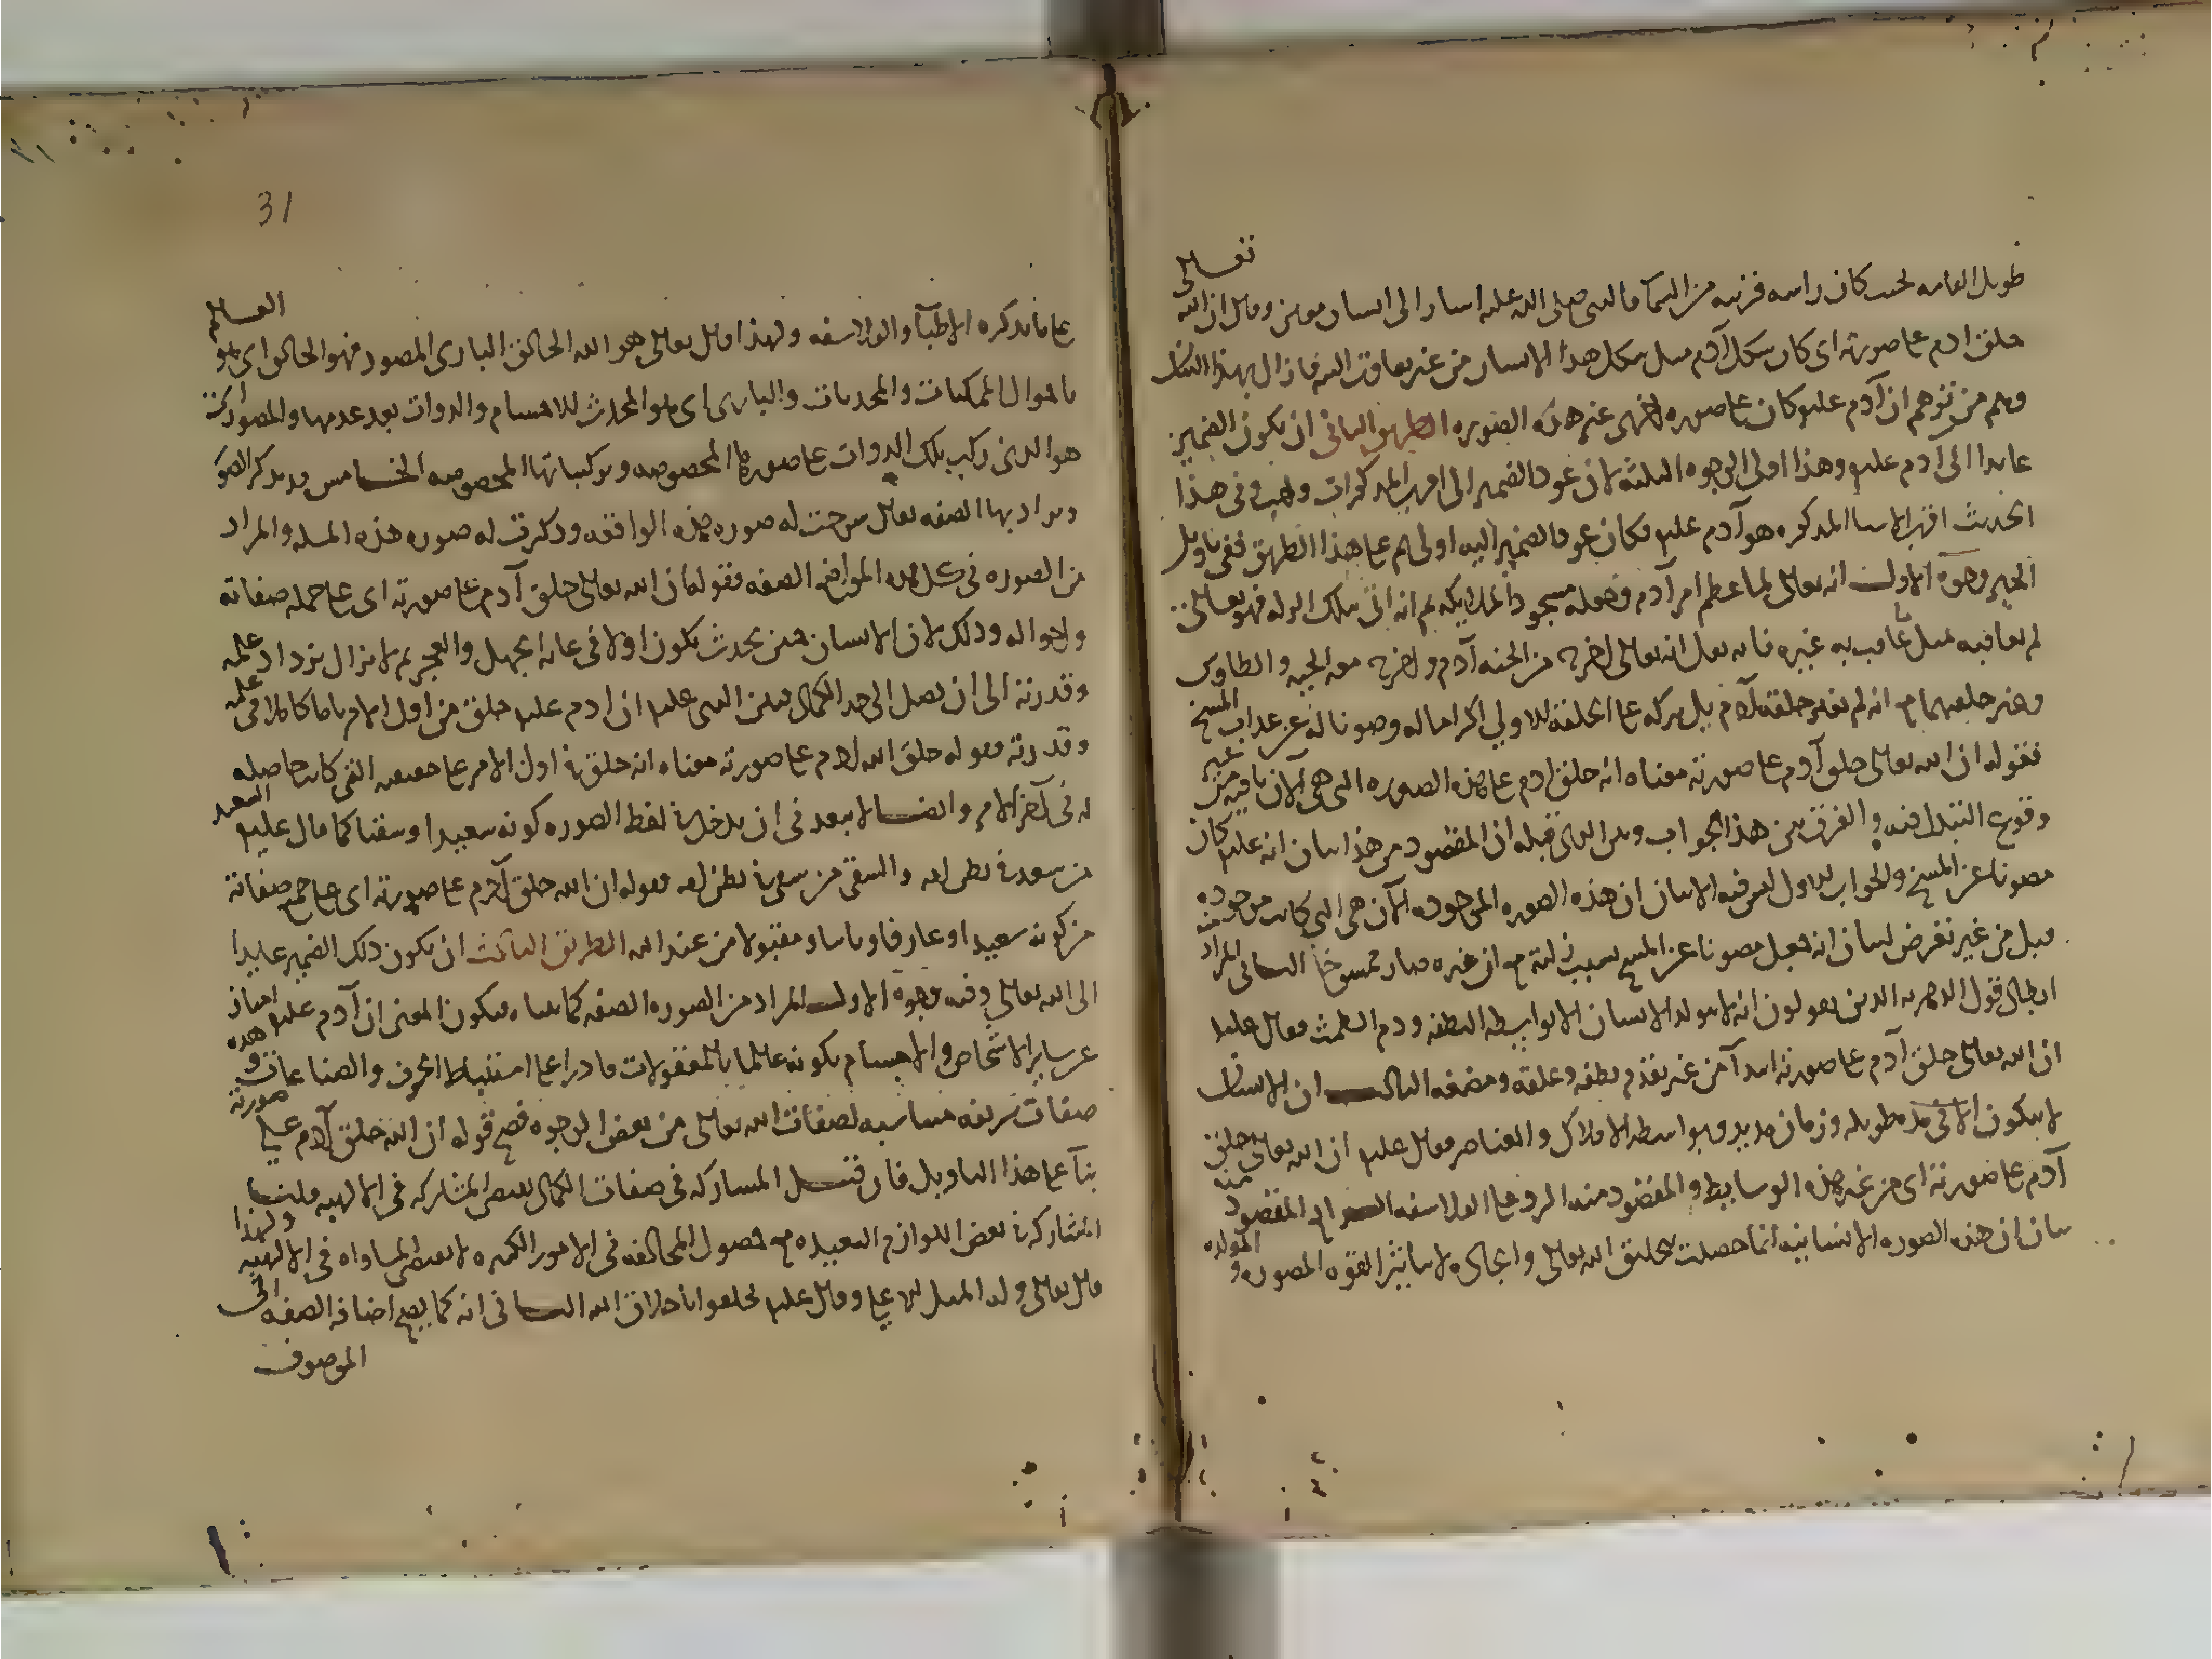 طويل القامه بحيث كان راسه قريبه من السما فالنبي صلى الله عليه اشار الى انسان معين وقال ان الله تعالى
خلق ادم على صورته اى كان شكل آدم مثل شكل هذا الانسان من غير تفاوت البته فازال بهذا البيان
وهم من توهم ان آدم عليلم كان على صوره اخرى غير هذه الصوره الطريق الثانى ان يكون الضمير
عايدا الى آدم عليلم وهذا اولى الوجوه الثلثه لان عود الضمير الى اقرب المذكورات واجب وفى هذا
الحديث اقرب الاشيا المذكوره هو آدم عليلم فكان عود الضمير اليه اولى ثم على هذا الطريق ففى تاويل
الخبر وجوه الاول انه تعالى لما عظم امر آدم فجعله مسجود الملايكه ثم انه اتى بتلك الزله فهو تعالى
لم يعاقبه بمثل ما عاقب به غيره فانه نقل انه تعالى اخرجه من الجنه آدم واخرج معه الحيه والطاوس
وغير خلقهما مع انه لم يغير خلقة آدم بل تركه على الخلقه الاولى اكراما له وصونا له عن عذاب المسخ
فقوله ان الله تعالى خلق آدم على صورته معناه انه خلق ادم على هذه الصوره التى هى الآن باقيه من غير
وقوع التبدل فيه والفرق بين هذا الجواب وبين الذى قبله ان المقصود من هذا بيان انه عليلم كان
مصونا عن المسخ والجواب الاول ليس فيه الا بيان ان هذه الصوره الموجوده الآن هى التى كانت موجوده
قبل من غير تعرض لبيان انه جعل مصونا عن المسخ بسبب زلته مع ان غيره صار ممسوخا الثانى المراد منه
ابطال قول الدهريه الذين يقولون انه لا يتولد الانسان الا بواسطه النطفه ودم الطمث فقال عليلم
ان الله تعالى خلق آدم على صورته ابتدآ من غير تقدم نطفه وعلقه ومضغه الثالث ان الانسان
لا يتكون الا فى مده طويله وزمان مديد وبواسطه الافلاك والعناصر فقال عليلم ان الله تعالى خلق
آدم على صورته اى من غير هذه الوسايط والمقصود منه الرد على الفلاسفه الرابع المقصود منه
بيان ان هذه الصوره الانسانيه انما حصلت بتخليق الله تعالى وايجاده لا بتاثير القوه المصوره و المولده
31
على ما تذكره الاطبآ والفلاسفه ولهذا قال تعالى هو الله الخالق البارى المصور فهو الخالق اى هو العالم
باحوال الممكنات والمحدثات والبارى اى هو المحدث للاجسام والذوات بعد عدمها والمصور اى
هو الذى ركب تلك الذوات على صورها المخصوصه وتركيباتها المخصوصه الخامس قد تذكر الصوره
ويراد بها الصفه يقال شرحت له صوره هذه الواقعه وذكرت له صوره هذه المسله والمراد
من الصوره فى كل هذه المواضع الصفه فقوله ان الله تعالى خلق آدم على صورته اى على جمله صفاته
واحواله وذلك لان الانسان حين يحدث يكون اولا فى غايه الجهل والعجز ثم لا يزال يزداد علمه
وقدرته الى ان يصل الى حد الكمال فبين النبى عليلم ان ادم عليلم خلق من اول الامر تاما كاملا فى علمه
وقدرته فقوله خلق الله آدم على صورته معناه انه خلق فى اول الامر على صفته التى كانت حاصله
له فى آخر الامر وايضا لا يبعد فى ان يدخل فى لفظ الصوره كونه سعيدا او شقيا كما قال عليلم السعيد
من سعد فى بطن امه والشقى من شقى فى بطن امه فقوله ان الله خلق آدم على صورته اى على جميع صفاته
من كونه سعيدا و عارفا و تايبا و مقبولا من عند الله الطريق الثالث ان يكون ذلك الضمير عايدا
الى الله تعالى وفيه وجوه الاول المراد من الصوره الصفه كما بيناه فيكون المعنى ان آدم عليلم امتاز
عن ساير الاشخاص والاجسام بكونه عالما بالمعقولات قادرا على استنباط الحرف والصناعات وهذه
صفات شريفه مناسبه لصفات الله تعالى من بعض الوجوه فصح قوله ان الله خلق آدم على صورته
بنآ على هذا التاويل فان قيل المشاركه فى صفات الكمال يقتضى المشاركه فى الالهيه قلنا
المشاركه فى بعض اللوازم البعيده مع حصول المخالفه فى الامور الكثيره لا يقتضى المساواه فى الالهيه ولهذا
قال تعالى وله المثل الاعلى وقال عليلم تخلقوا باخلاق الله الثانى انه كما يصح اضافه الصفه الى
الموصوف